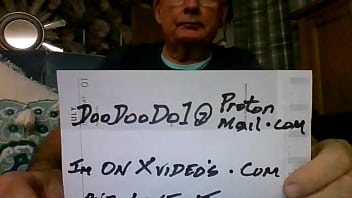 JULY 01
DooDooDo1@ Proton
Mail.com
Im ON XVIDEO'S.COM